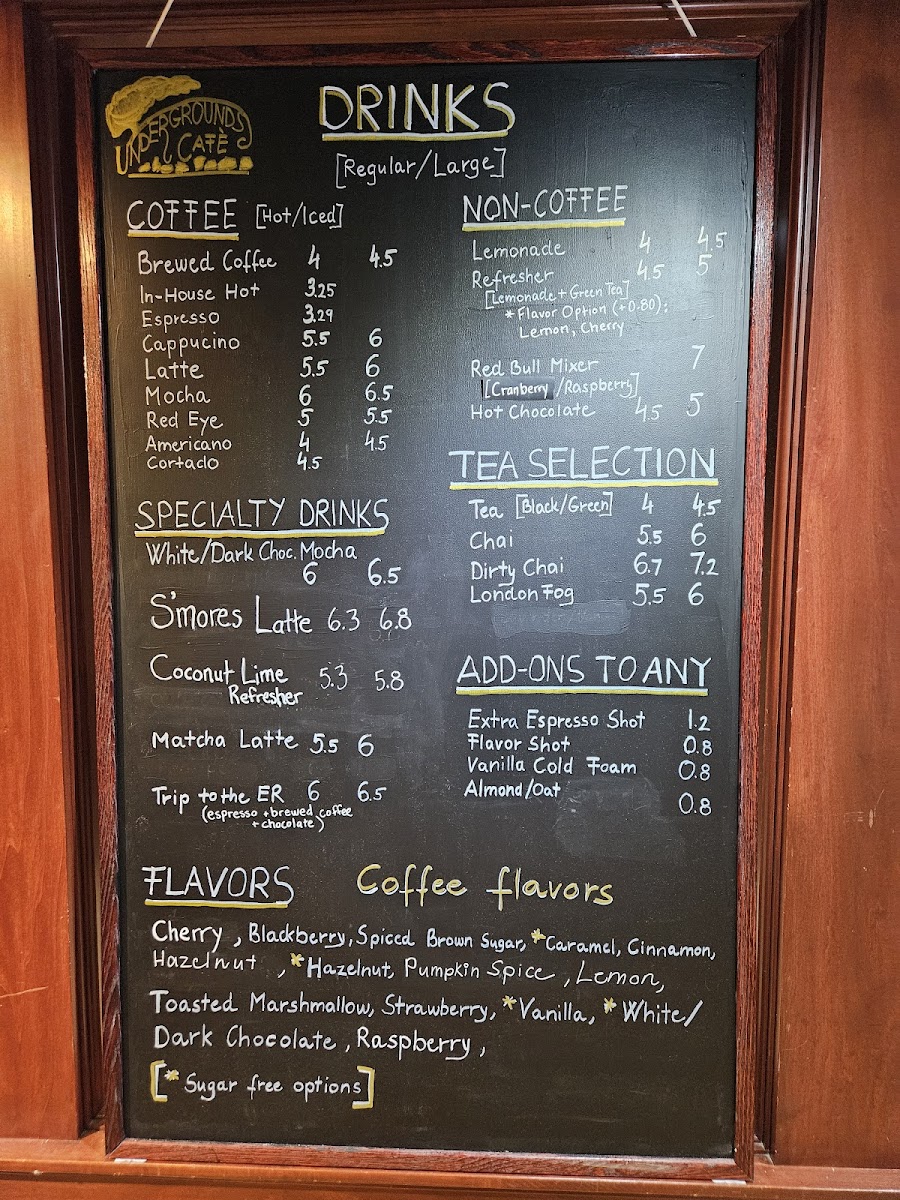 UNDERGROUNDS
CAFÈ
DRINKS
[Regular/Large]
COFFEE [Hot/Iced]
Brewed Coffee 4 4.5
In-House Hot 3.25
Espresso 3.29
Cappucino 5.5 6
Latte 5.5 6
Mocha 6 6.5
Red Eye 5 5.5
Americano 4 4.5
Cortado 4.5
SPECIALTY DRINKS
White/Dark Choc. Mocha
6 6.5
S'mores Latte 6.3 6.8
Coconut Lime 5.3 5.8
Refresher
Matcha Latte 5.5 6
Trip to the ER 6 6.5
(espresso + brewed coffee
+ chocolate)
NON-COFFEE
Lemonade 4 4.5
Refresher 4.5 5
[Lemonade + Green Tea]
*Flavor Option (+0.80):
Lemon, Cherry
Red Bull Mixer 7
[Cranberry/Raspberry]
Hot Chocolate 4.5 5
TEA SELECTION
Tea [Black/Green] 4 4.5
Chai 5.5 6
Dirty Chai 6.7 7.2
London Fog 5.5 6
ADD-ONS TO ANY
Extra Espresso Shot 1.2
Flavor Shot 0.8
Vanilla Cold Foam 0.8
Almond/Oat 0.8
FLAVORS Coffee flavors
Cherry, Blackberry, Spiced Brown Sugar, *Caramel, Cinnamon,
Hazelnut, *Hazelnut, Pumpkin Spice, Lemon,
Toasted Marshmallow, Strawberry, *Vanilla, *White/
Dark Chocolate, Raspberry,
[* Sugar free options]